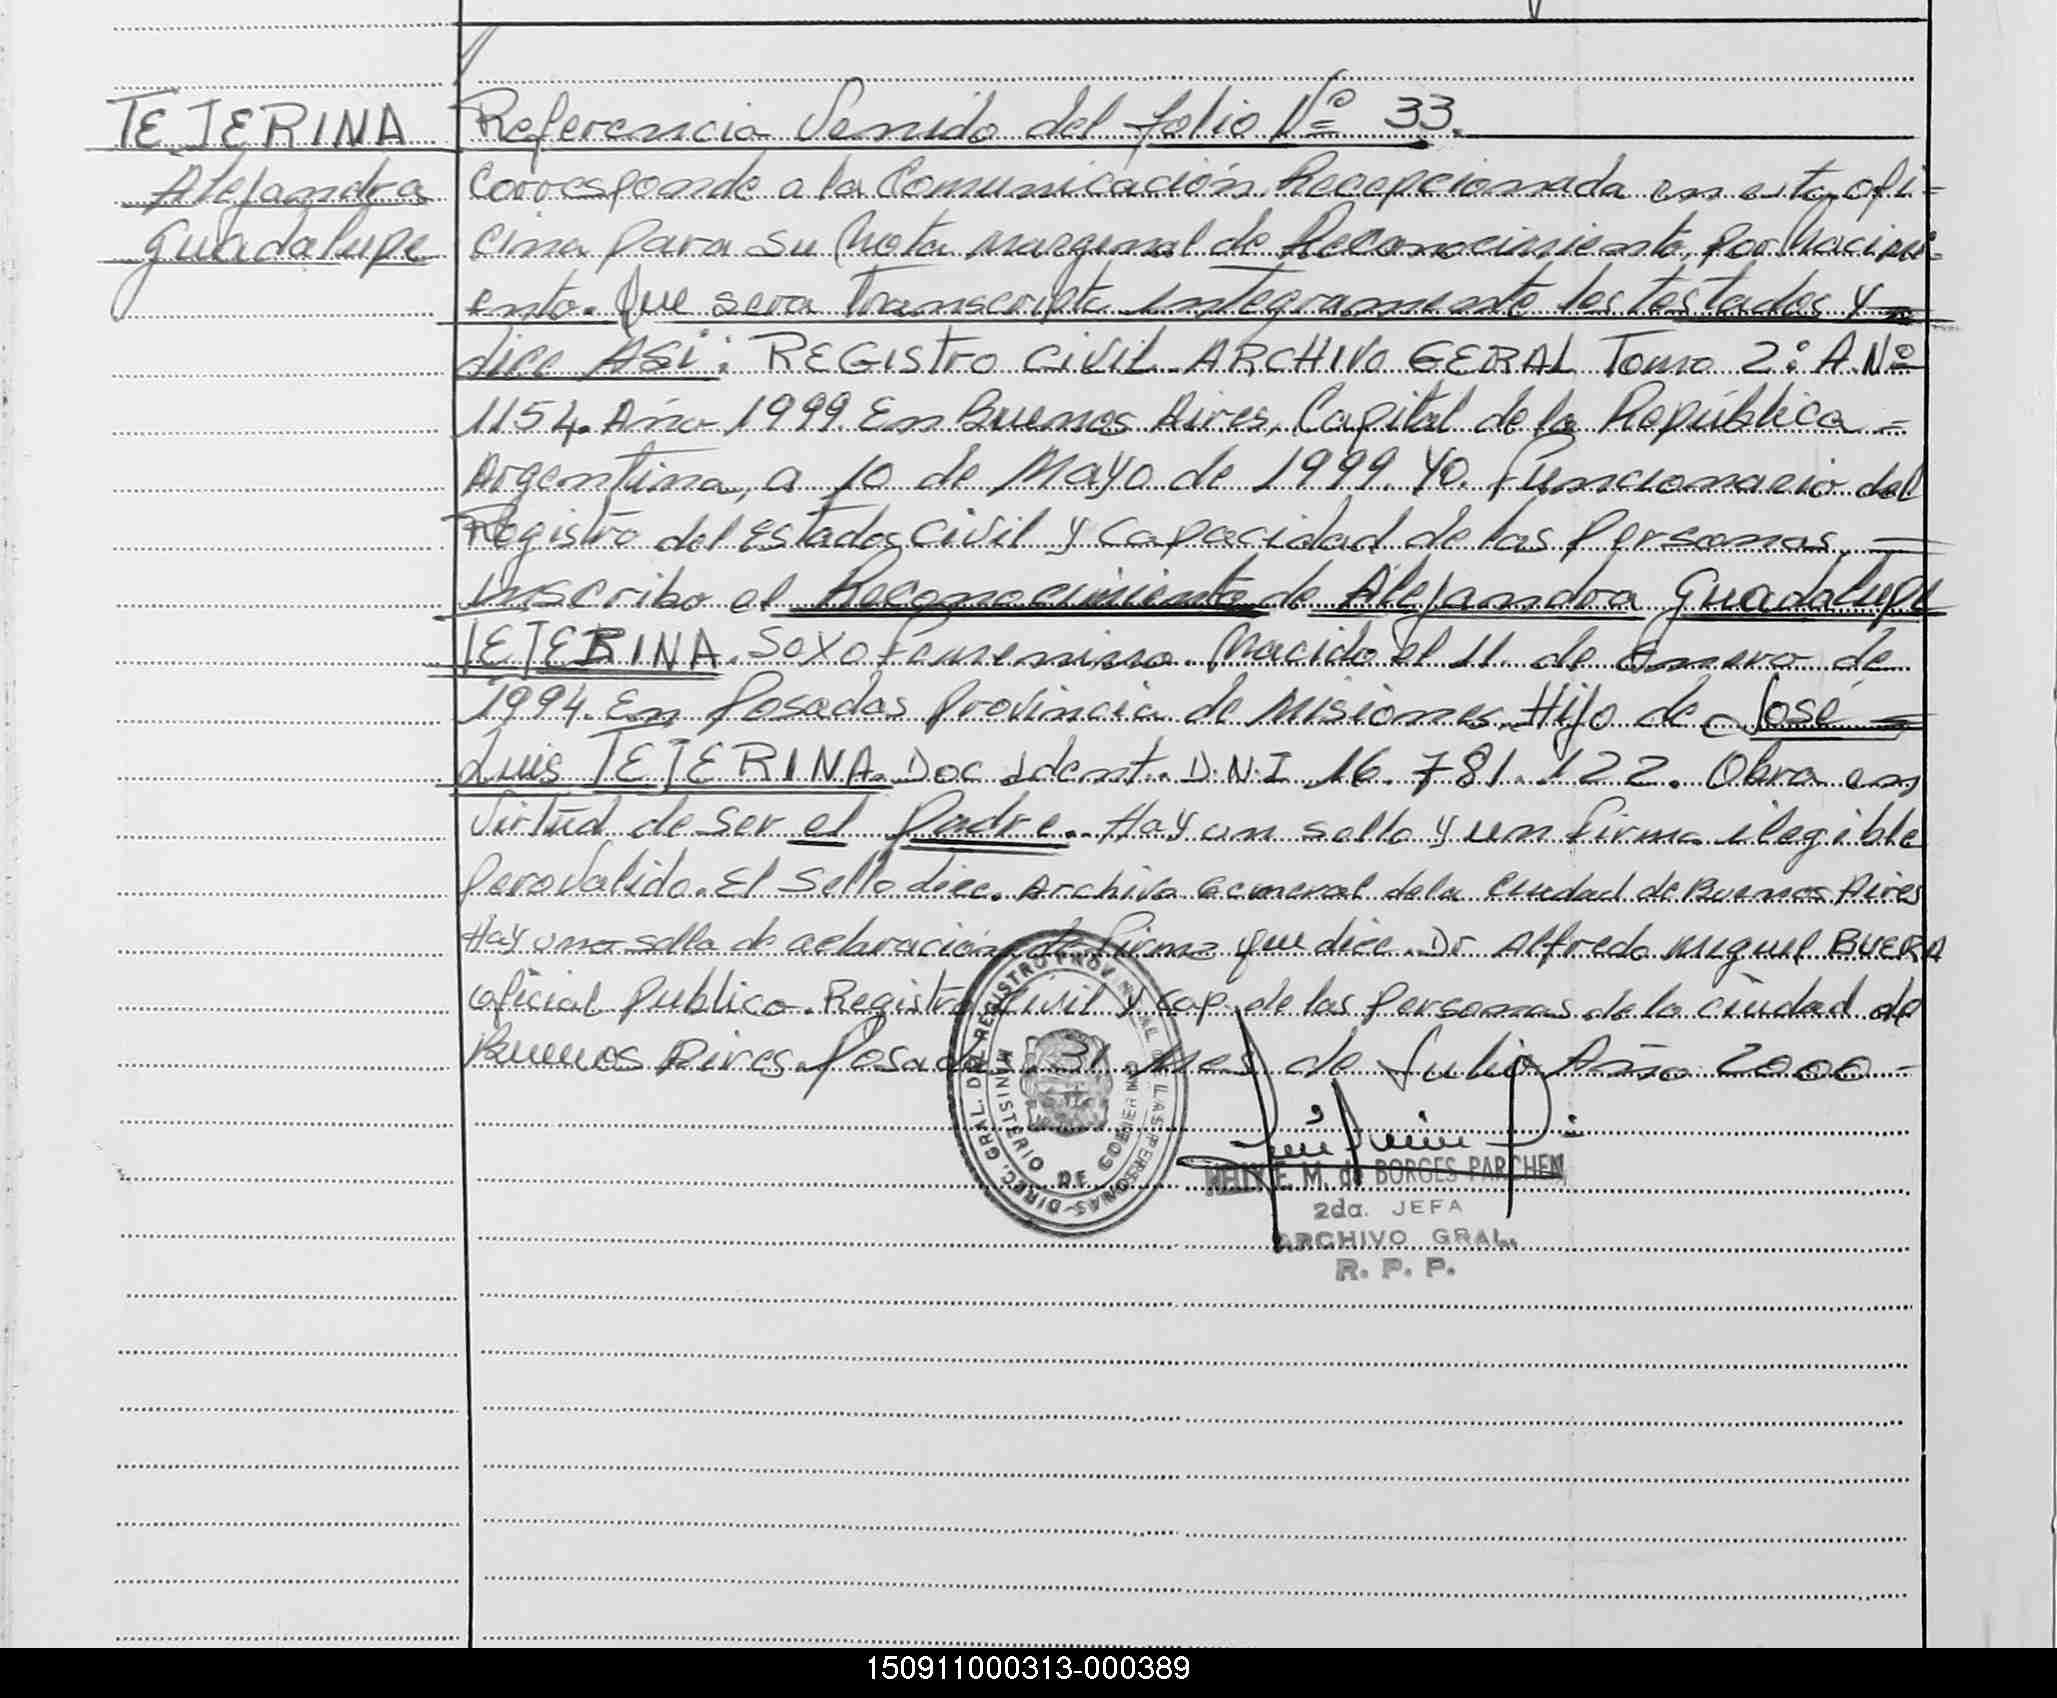 TEJERINA
Alejandra
Guadalupe
Referencia Venido del folio Nº 33.
Corresponde a la Comunicación Recepcionada en esta ofi=
cina para su Nota marginal de Reconocimiento, por Nacimi=
ento. Que sera Transcripta integramente los testados y =
dice ASi: REGIStro CiViL ARCHIVO GERAL Tomo 2º A.Nº
1154. Año 1999 En Buenos Aires, Capital de la República =
Argentina, a 10 de Mayo de 1999. YO. Funcionario del
Registro del Estado Civil y Capacidad de las Personas, =
inscribo el Reconocimiento de Alejandra Guadalupe
TEJERINA. Sexo Femenino. Nacido el 11 de Enero de
1994. En Posadas Provincia de Misiones. Hijo de José =
Luis TEJERINA. Doc Ident. D.N.I 16.781.122. Obra en
Virtud de ser el Padre. Hay un sello y un firma ilegible
pero Valido. El Sello dice. Archivo General de la Ciudad de Buenos Aires
Hay una sello de aclaración de firma que dice. Dr Alfredo Miguel BUERA
oficial Publico. Registro Civil y Cap. de las Personas de la ciudad de
Buenos Aires. Posadas 31 Mes de Julio Año 2000 -
DIREC. GRAL. DEL REGISTRO PROVINCIAL DE LAS PERSONAS
MINISTERIO DE GOBIERNO
NELLY E. M. de BORGES PARCHEN
2da. JEFA
ARCHIVO GRAL.
R. P. P.
150911000313-000389